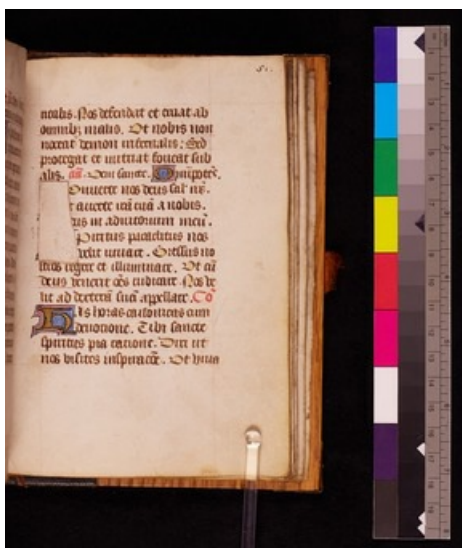 51.
ntalis. Nos defendat et eruat ab
omnibz malis. Ut nobis non
noceat demon infernalis: Sed
protegat et nutriat foueat sub
alis. añ. Veni sancte.
onuerte nos deus sal' nr̄.
t auerte irā tuā a nobis.
us in adiutorium meū.
piritus paraclitus nos
velit iuuare. Gressus no
stros regere et illuminare. Ut cū
deus venerit oēs iudicare. Nos ve
lit ad dexterā suā appellare. Cō
His horas canonicas cum
deuotione. Tibi sancte
spiritus pia racione. Dixi ut
nos visites inspiracōe. Et